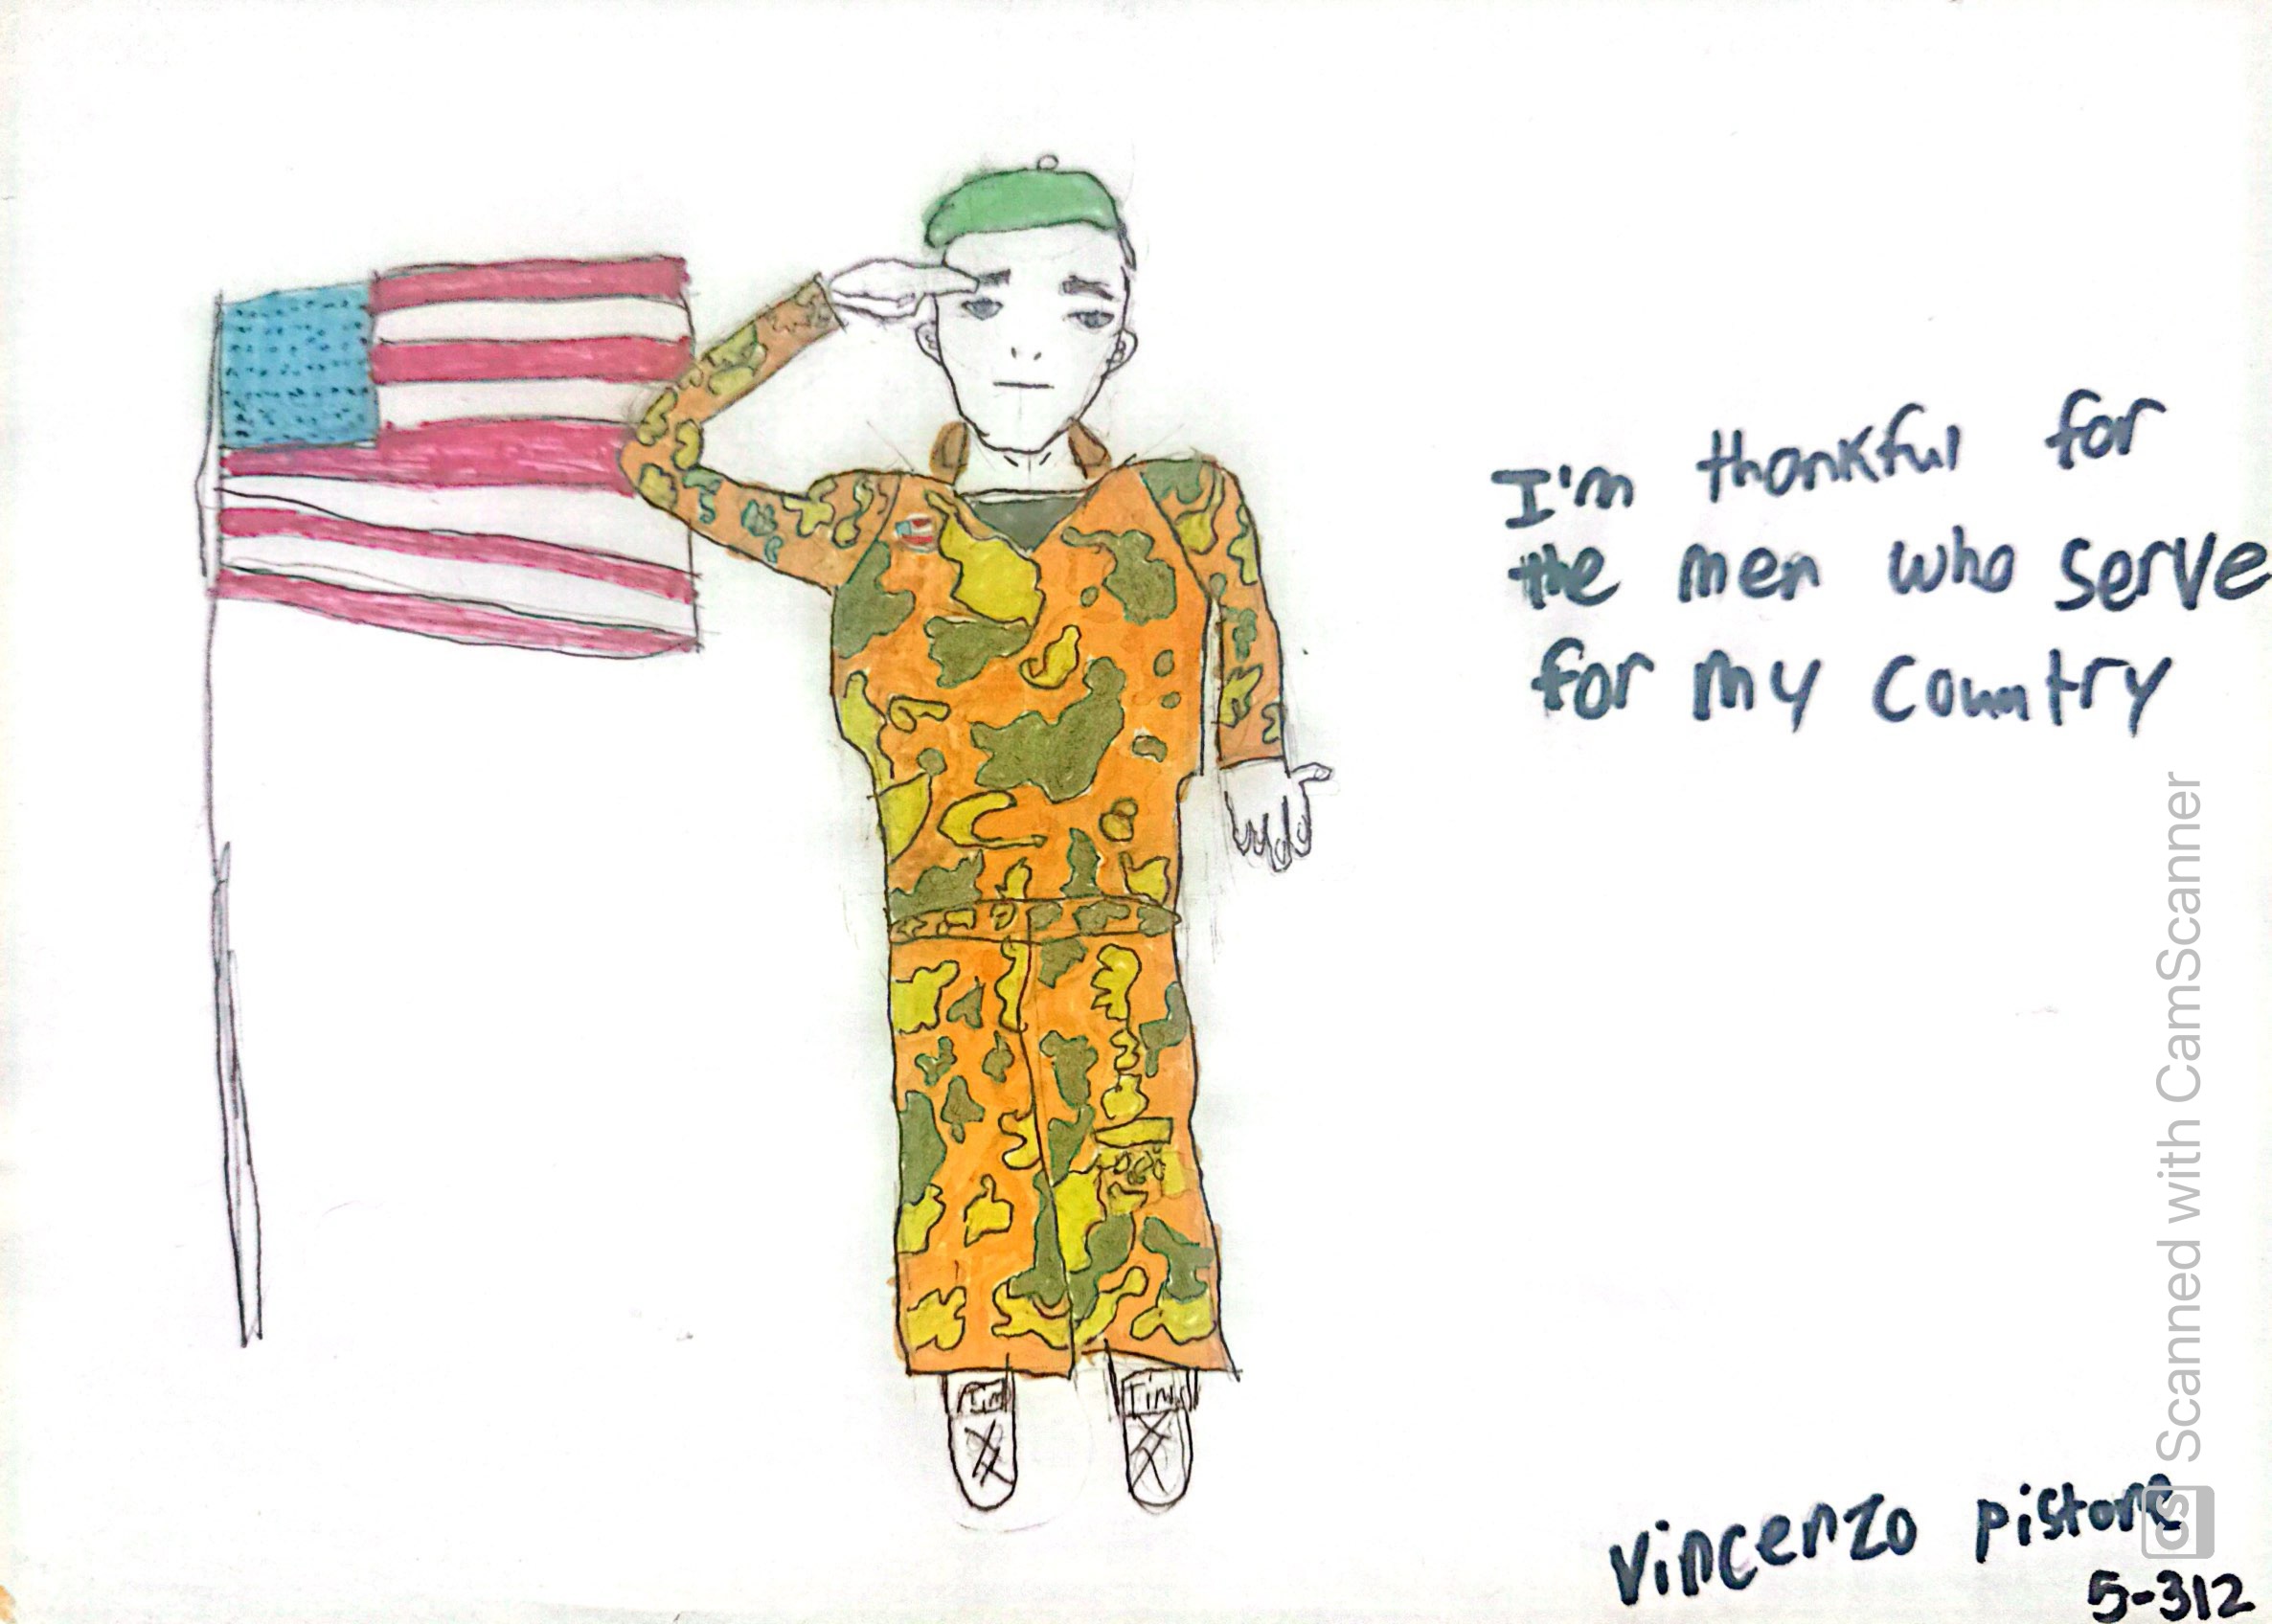 I'm thankful for
the men who serve
for my country
Tim
Tims
Vincenzo pistone
5-312
CS Scanned with CamScanner